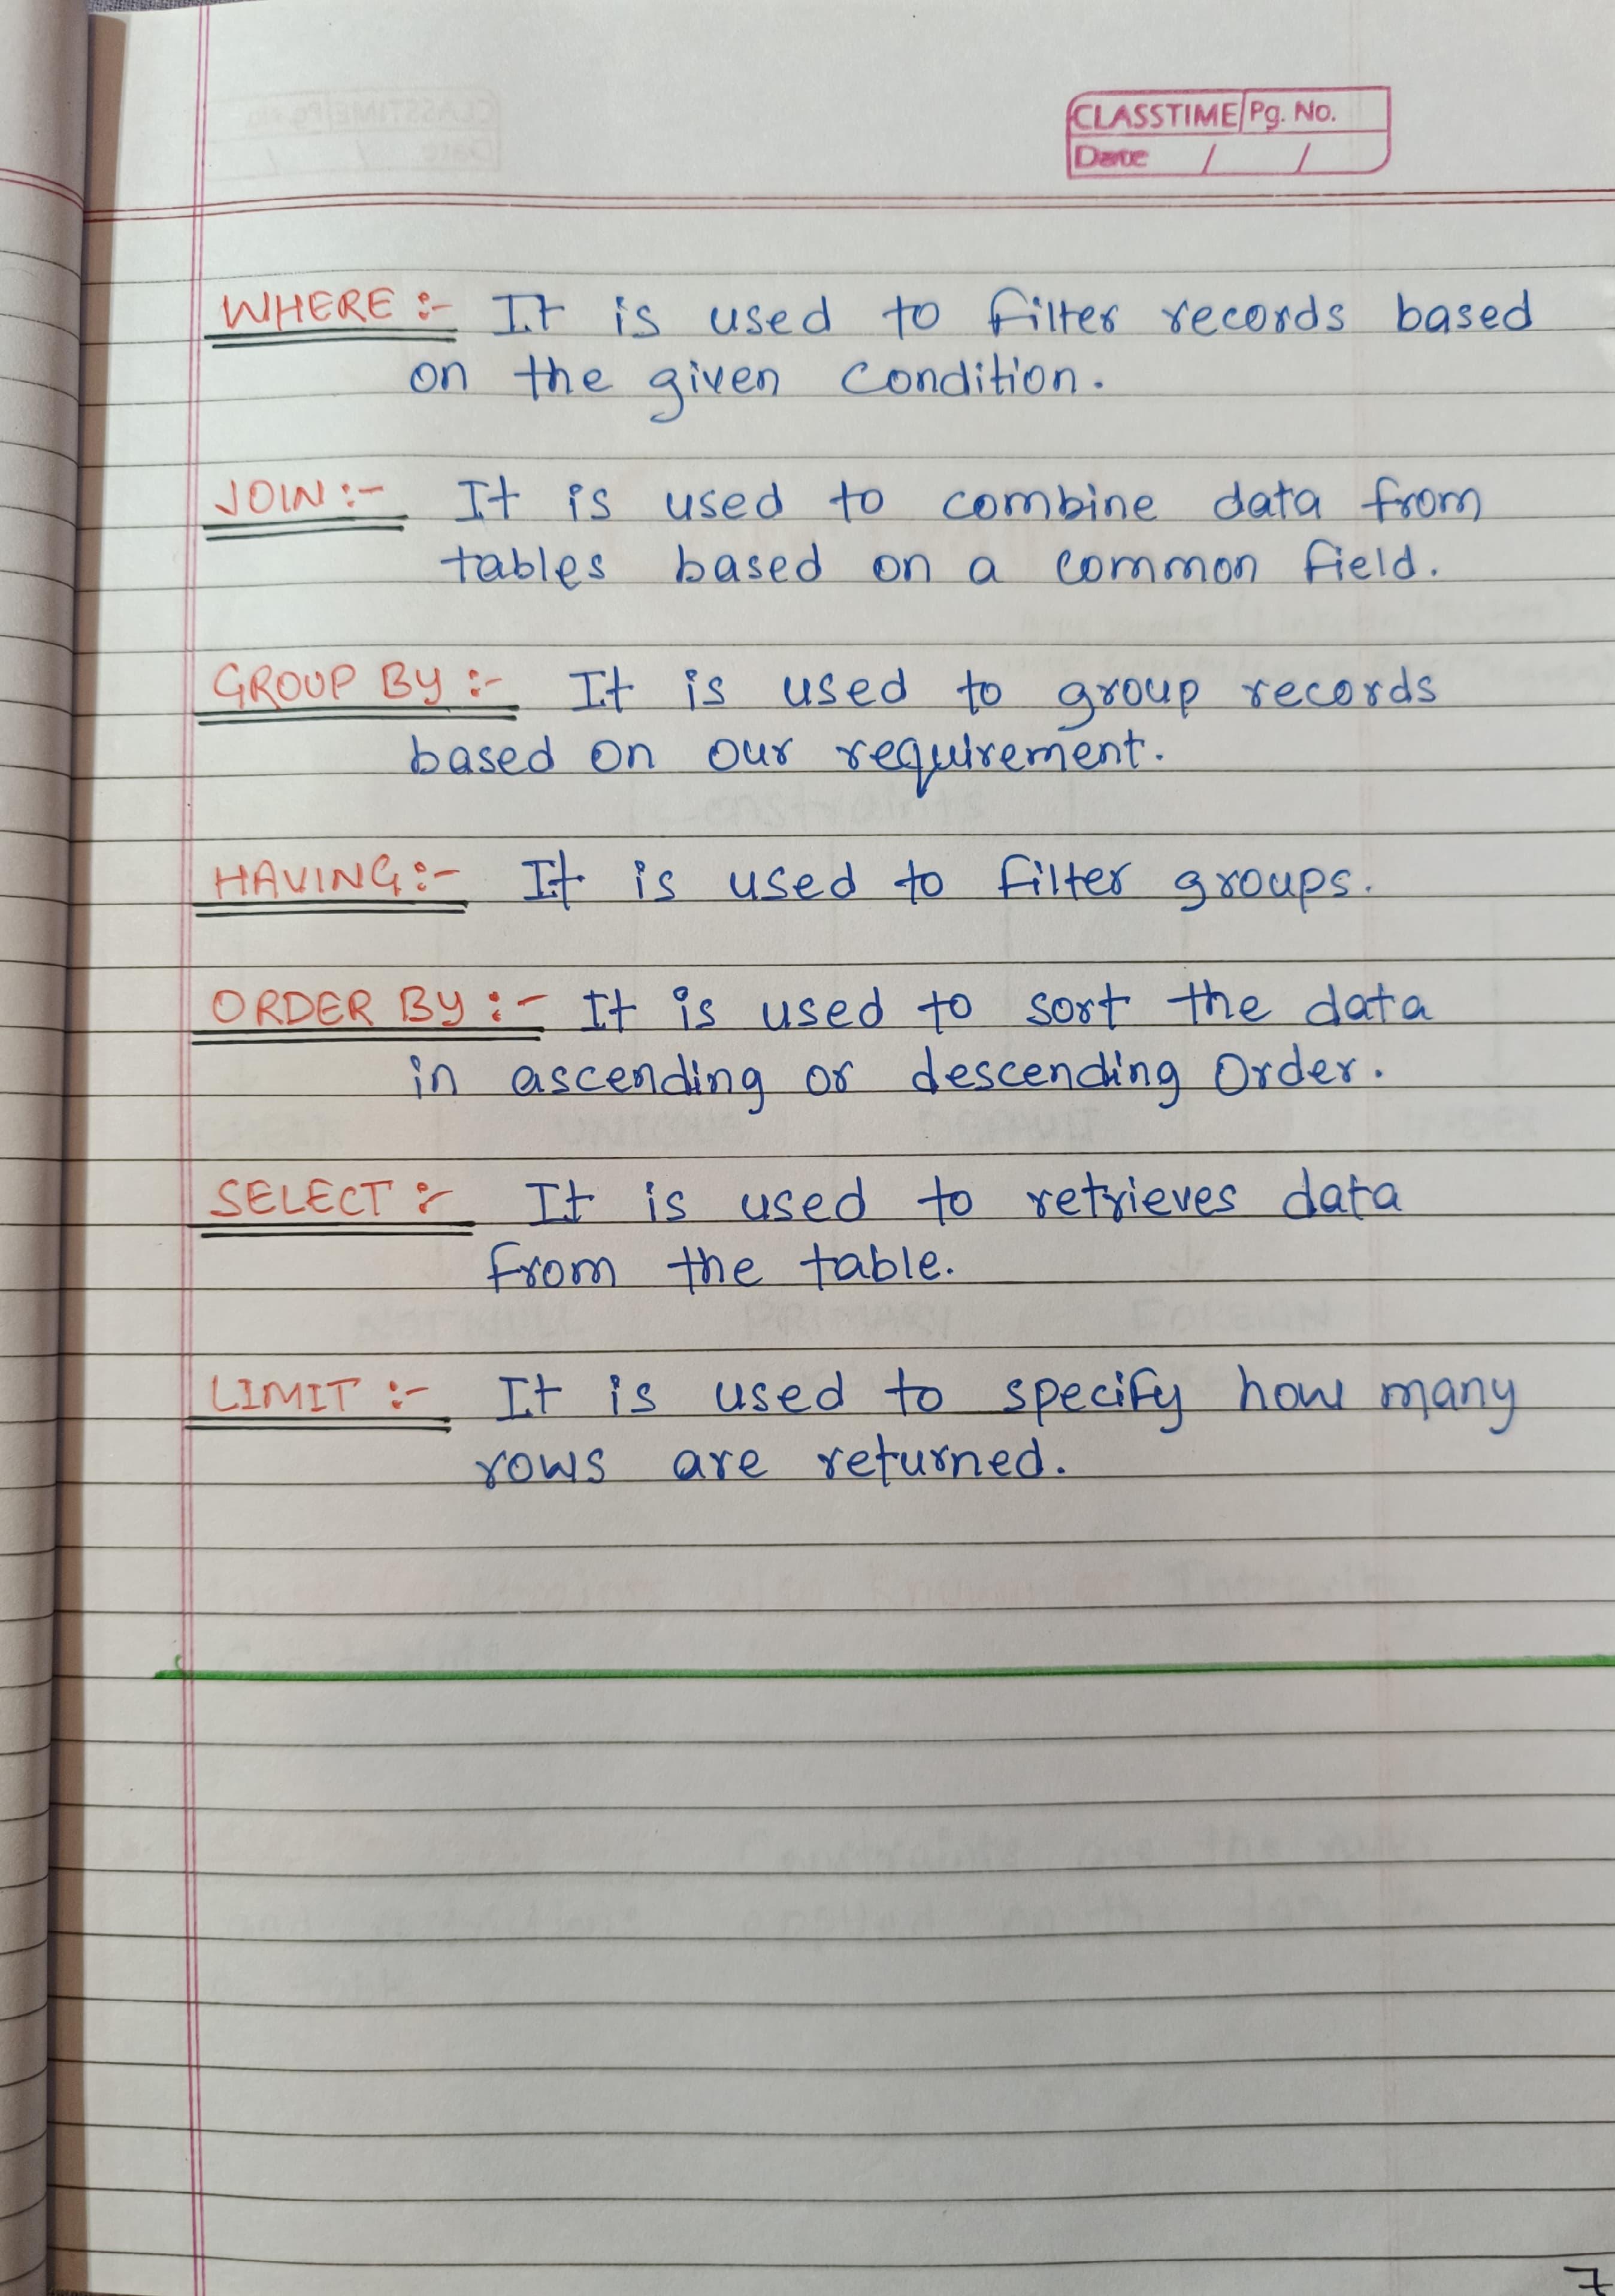 CLASSTIME Pg. No.
Date / /
WHERE :- It is used to filter records based
on the given condition.
JOIN :- It is used to combine data from
tables based on a common field.
GROUP BY :- It is used to group records
based on our requirement.
HAVING :- It is used to filter groups.
ORDER BY :- It is used to sort the data
in ascending or descending Order.
SELECT :- It is used to retrieves data
from the table.
LIMIT :- It is used to specify how many
rows are returned.
7